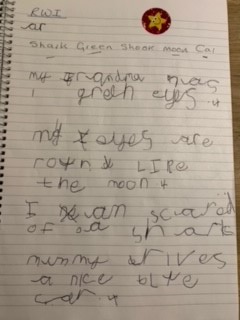 RWI
ar
Shark Green Shook moon Car
my grandma has
green eyes.
my eyes are
rown LIKe
the moon
I am scared
of a shark
mummy drives
a nice blue
car.